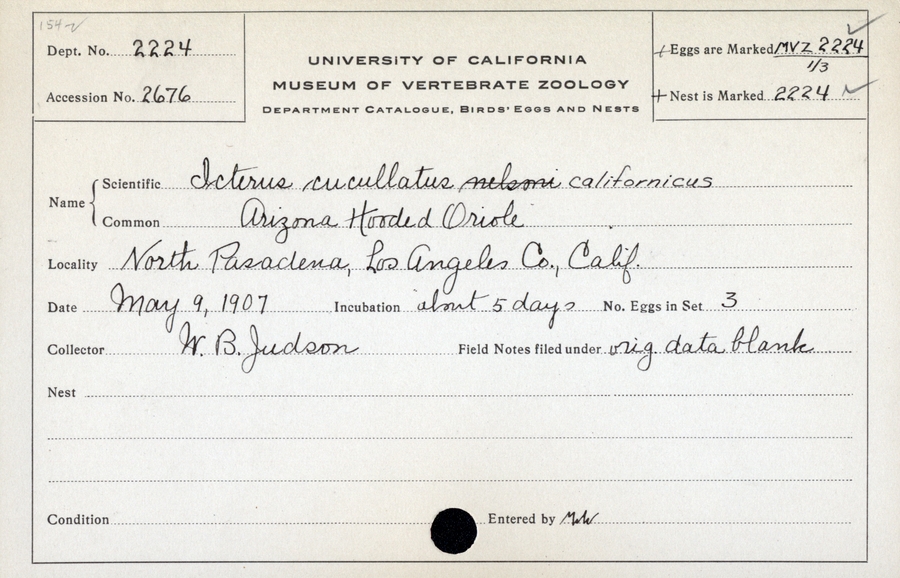 154
Dept. No. 2224
Accession No. 2676
UNIVERSITY OF CALIFORNIA
MUSEUM OF VERTEBRATE ZOOLOGY
DEPARTMENT CATALOGUE, BIRDS' EGGS AND NESTS
Eggs are Marked MVZ 2224
1/3
+ Nest is Marked 2224
Name
Scientific Icterus cucullatus nelsoni californicus
Common Arizona Hooded Oriole
Locality North Pasadena, Los Angeles Co., Calif.
Date May 9, 1907 Incubation about 5 days No. Eggs in Set 3
Collector W. B. Judson Field Notes filed under orig. data blank
Nest
Condition Entered by